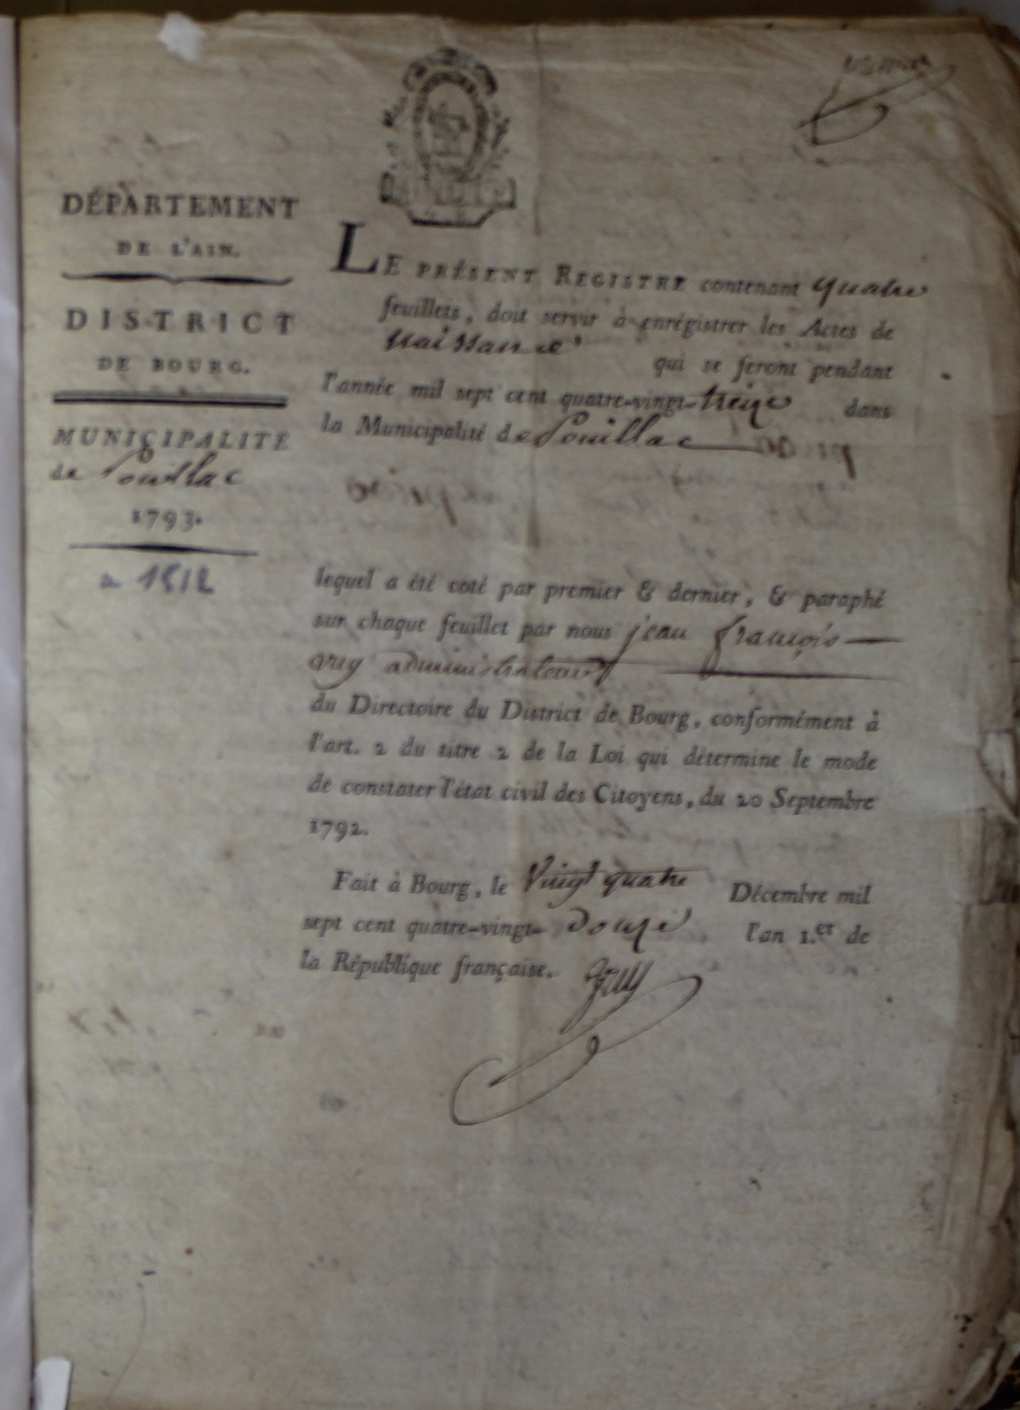 DÉPARTEMENT
DE L'AIN.
DISTRICT
DE BOURG.
MUNICIPALITÉ
de Pouillac
1793.
a 1812
LE PRÉSENT REGISTRE contenant quatre
feuillets, doit servir à enrégistrer les Actes de
Naissance qui se feront pendant
l'année mil sept cent quatre-vingt-treize dans
la Municipalité de Pouillac
lequel a été coté par premier & dernier, & paraphé
sur chaque feuillet par nous jean françois
administrateur
du Directoire du District de Bourg, conformément à
l'art. 2 du titre 2 de la Loi qui détermine le mode
de constater l'état civil des Citoyens, du 20 Septembre
1792.
Fait à Bourg, le Vingt quatre Décembre mil
sept cent quatre-vingt-douze l'an 1.er de
la République française.